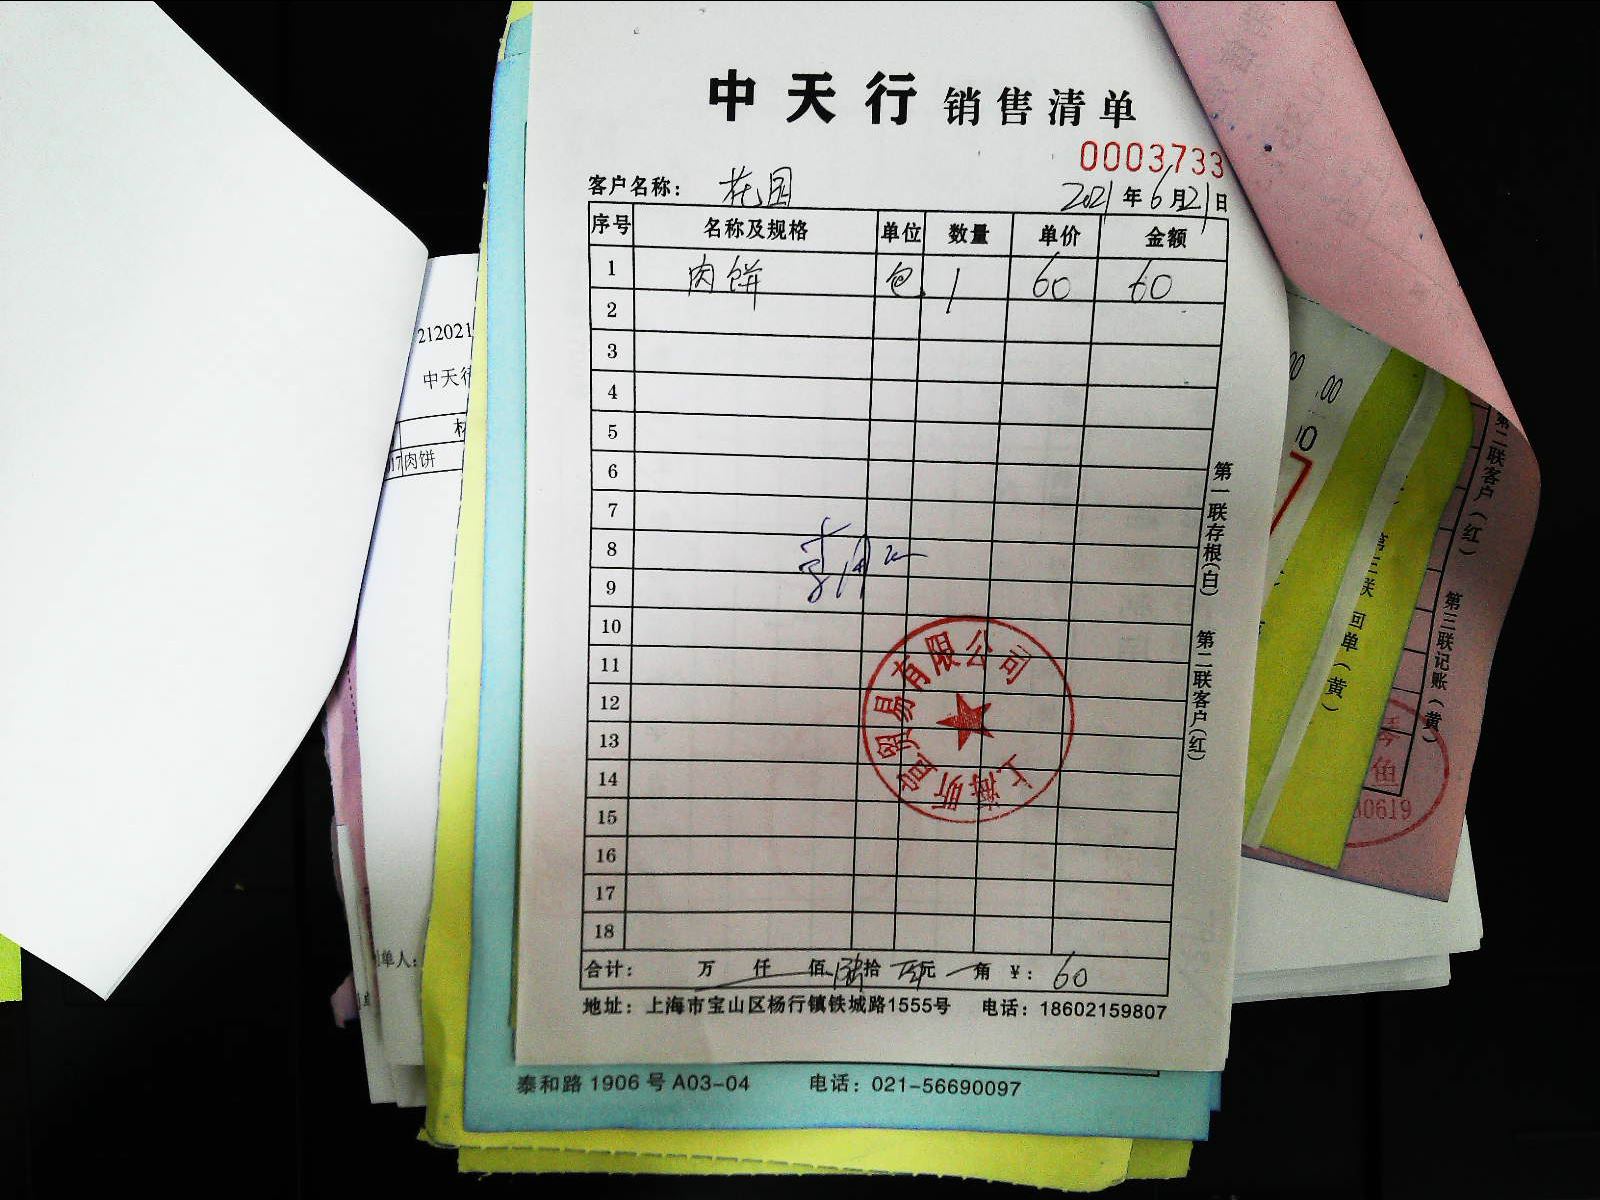 中天行 销售清单
0003733
客户名称： 花园 2021年6月21日
序号 名称及规格 单位 数量 单价 金额
1 肉饼 包 1 60 60
2
3
4
5
6
7
8
9
10
11
12
13
14
15
16
17
18
合计： 万 仟 佰 陆拾 元 角 ¥： 60
地址：上海市宝山区杨行镇铁城路1555号 电话：18602159807
第一联存根(白)
第二联客户(红)
上海昕宣贸易有限公司
泰和路1906号A03-04 电话：021-56690097
212021
中天行
17 肉饼
单人：
.00
第二联客户(红)
第三联记账(黄)
第三联 回单(黄)
鱼
80619